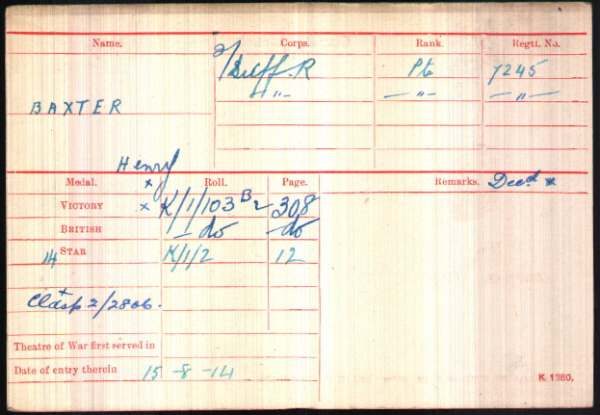 Name. Corps. Rank. Regtl. No.
2/Suff. R Pte 7245
" — — " — — " —
BAXTER
Henry
Medal. Roll. Page. Remarks. Decd *
VICTORY × K/1/103 B2 308
BRITISH — do — do
14 STAR K/1/2 12
×
Clasp 2/2806.
Theatre of War first served in
Date of entry therein 15-8-14
K 1380.